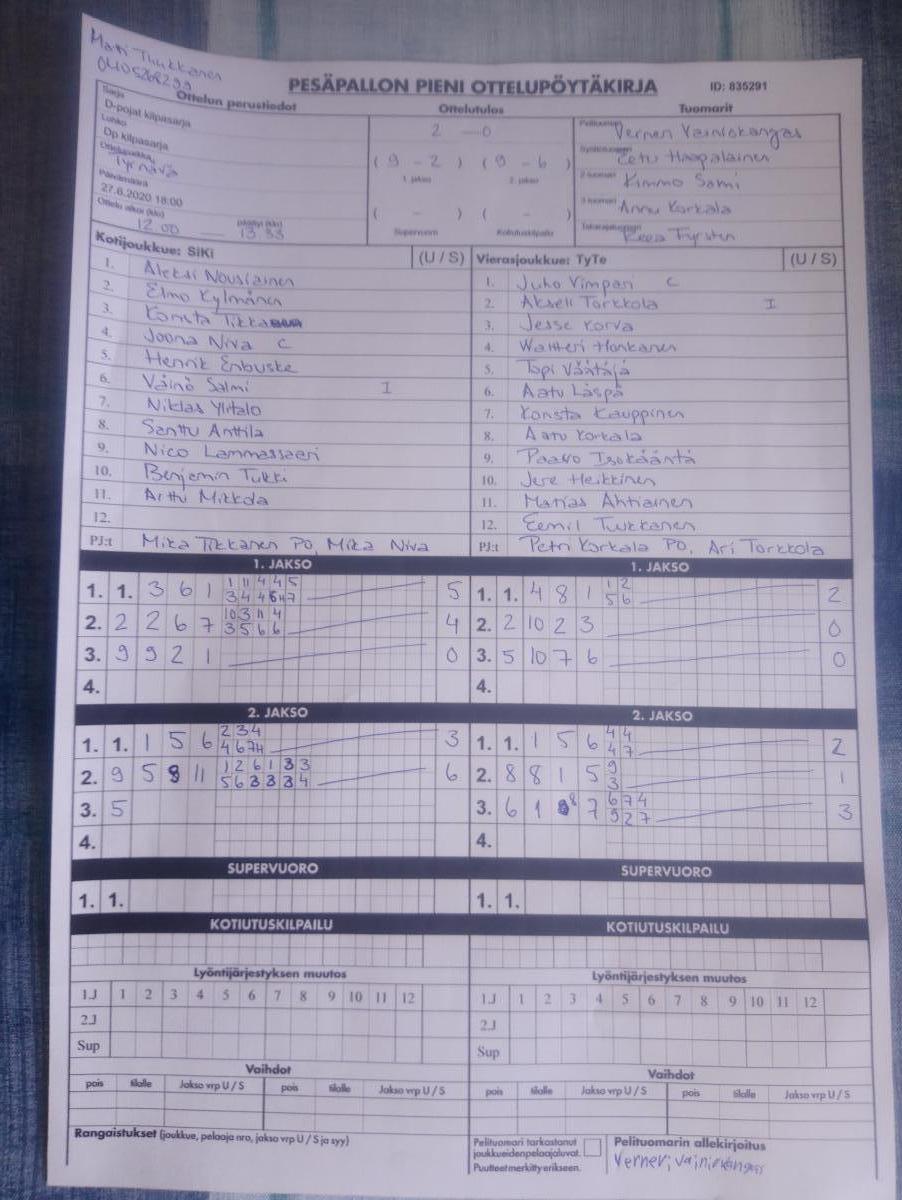 Matti Tuukkanen
0405268299
PESÄPALLON PIENI OTTELUPÖYTÄKIRJA ID: 835291
Ottelun perustiedot
Sarja
D-pojat kilpasarja
Lohko
Dp kilpasarja
Ottelupaikka
Tyrnävä
Päivämäärä
27.6.2020 18:00
Ottelu alkoi (klo) päättyi (klo)
12.00 — 13.33
Ottelutulos
2 - 0
(9 - 2) (9 - 6)
1. jakso 2. jakso
( - ) ( - )
Supervuoro Kotiutuskilpailu
Tuomarit
Pelituomari
Syöttötuomari
2-tuomari Kimmo Salmi
3-tuomari Annu Korkala
Takarajatuomari
Kotijoukkue: SiKi (U / S)
1. Aleksi Nousiainen
2. Elmo Kylmänen
3. Konsta
4. Joona Niva C
5. Henrik Enbuske
6. Väinö Salmi I
7. Niklas Ylitalo
8. Santtu Anttila
9. Nico Lammassaari
10. Benjamin Tukki
11. Arttu Mikkola
12.
PJ:t Mika Tikkanen PO, Mika Niva
Vierasjoukkue: TyTe (U / S)
1. Juho Vimpari C
2. Akseli Torkkola I
3. Jesse Korva
4. Waltteri Honkanen
5. Topi Väätäjä
6. Aatu Läspä
7. Konsta Kauppinen
8. Aatu Korkala
9. Paavo Isokääntä
10. Jere Heikkinen
11. Matias Ahtiainen
12. Eemil Tuukkanen
PJ:t Petri Korkala PO, Ari Torkkola
1. JAKSO
1. 1. 3 6 1 5
2. 2 2 6 7 4
3. 9 9 2 1 0
4.
1. JAKSO
1. 1. 4 8 1 1 2 2
5 6
2. 2 10 2 3 0
3. 5 10 7 6 0
4.
2. JAKSO
1. 1. 1 5 6 2 3 4 3
2. 9 5 8 11 1 2 6 1 3 3 6
5 6 3 3 3 4
3. 5
4.
2. JAKSO
1. 1. 1 5 6 4 4 2
4 7
2. 8 8 1 5 9 1
3
3. 6 1 8 7 6 7 4 3
9 2 7
4.
SUPERVUORO
1. 1.
SUPERVUORO
1. 1.
KOTIUTUSKILPAILU
KOTIUTUSKILPAILU
Lyöntijärjestyksen muutos
1.J 1 2 3 4 5 6 7 8 9 10 11 12
2.J
Sup
Lyöntijärjestyksen muutos
1.J 1 2 3 4 5 6 7 8 9 10 11 12
2.J
Sup
Vaihdot
pois tilalle Jakso vrp U / S pois tilalle Jakso vrp U / S
Vaihdot
pois tilalle Jakso vrp U / S pois tilalle Jakso vrp U / S
Rangaistukset (joukkue, pelaaja nro, jakso vrp U / S ja syy)
Pelituomari tarkastanut
joukkueiden pelaajaluvat.
Puutteet merkitty erikseen.
Pelituomarin allekirjoitus